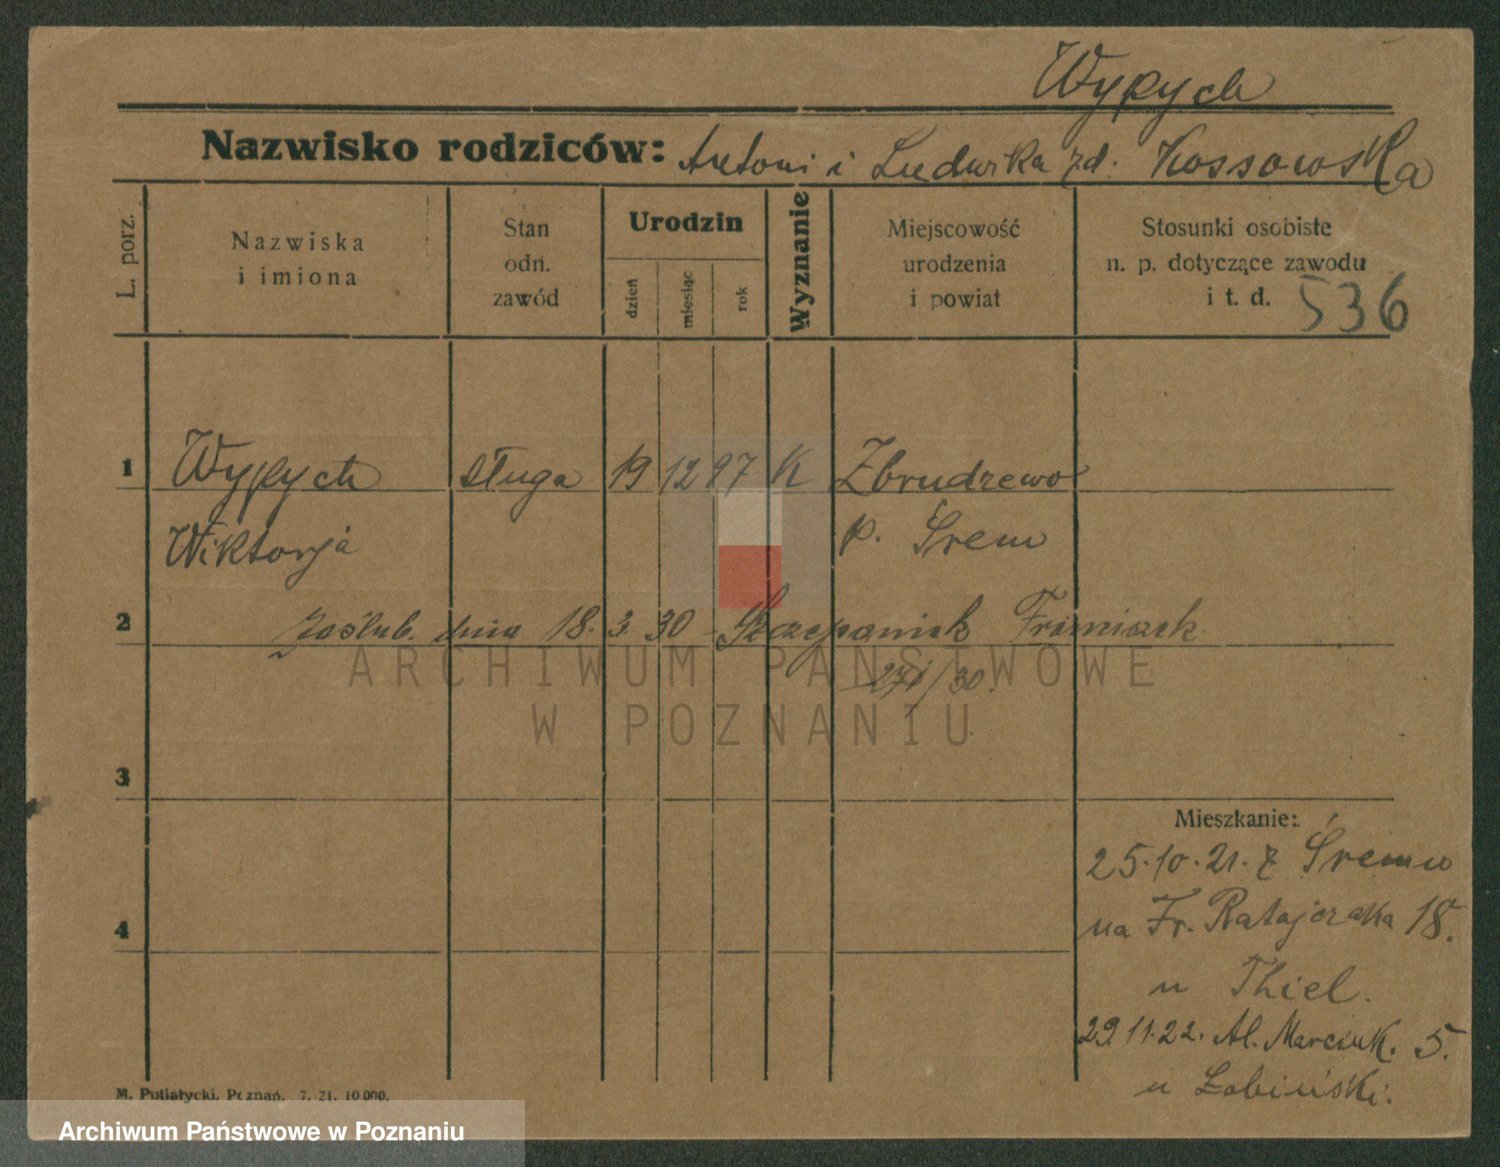 Wypych
Nazwisko rodziców: Antoni i Ludwika zd. Kossowska
L. porz.
Nazwiska
i imiona
Stan
odn.
zawód
Urodzin
dzień
miesiąc
rok
Wyznanie
Miejscowość
urodzenia
i powiat
Stosunki osobiste
n. p. dotyczące zawodu
i t. d. 536
1 Wypych sługa 19 12 97 K Zbrudzewo
Wiktorja p. Śrem
2 Zaślub. dnia 18. 3. 30 Szczepaniak
271/30.
3
Mieszkanie:
25.10.21. z Śremu
na Fr. Ratajczaka 18.
4
u Thiel.
29.11.22. Al. Marcink. 5.
u Łabiński.
M. Putiatycki, Poznań. 7. 21. 10 000.
ARCHIWUM PAŃSTWOWE
W POZNANIU
Archiwum Państwowe w Poznaniu